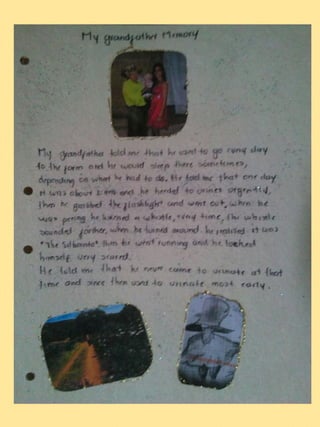 My grandfather Memory
My grandfather told me that he used to go every day
to the farm and he would sleep there sometimes,
depending on what he had to do. He told me that one day
it was about 2 am and he needed to urinate urgently,
then he grabbed the flashlight and went out, when he
was peeing he listened a whistle, every time, the whistle
sounded farther, when he turned around, he realized it was
"The Silbamito" then he went running and he locked
himself very scared.
He told me that he never came to urinate at that
time and since then used to urinate most early.